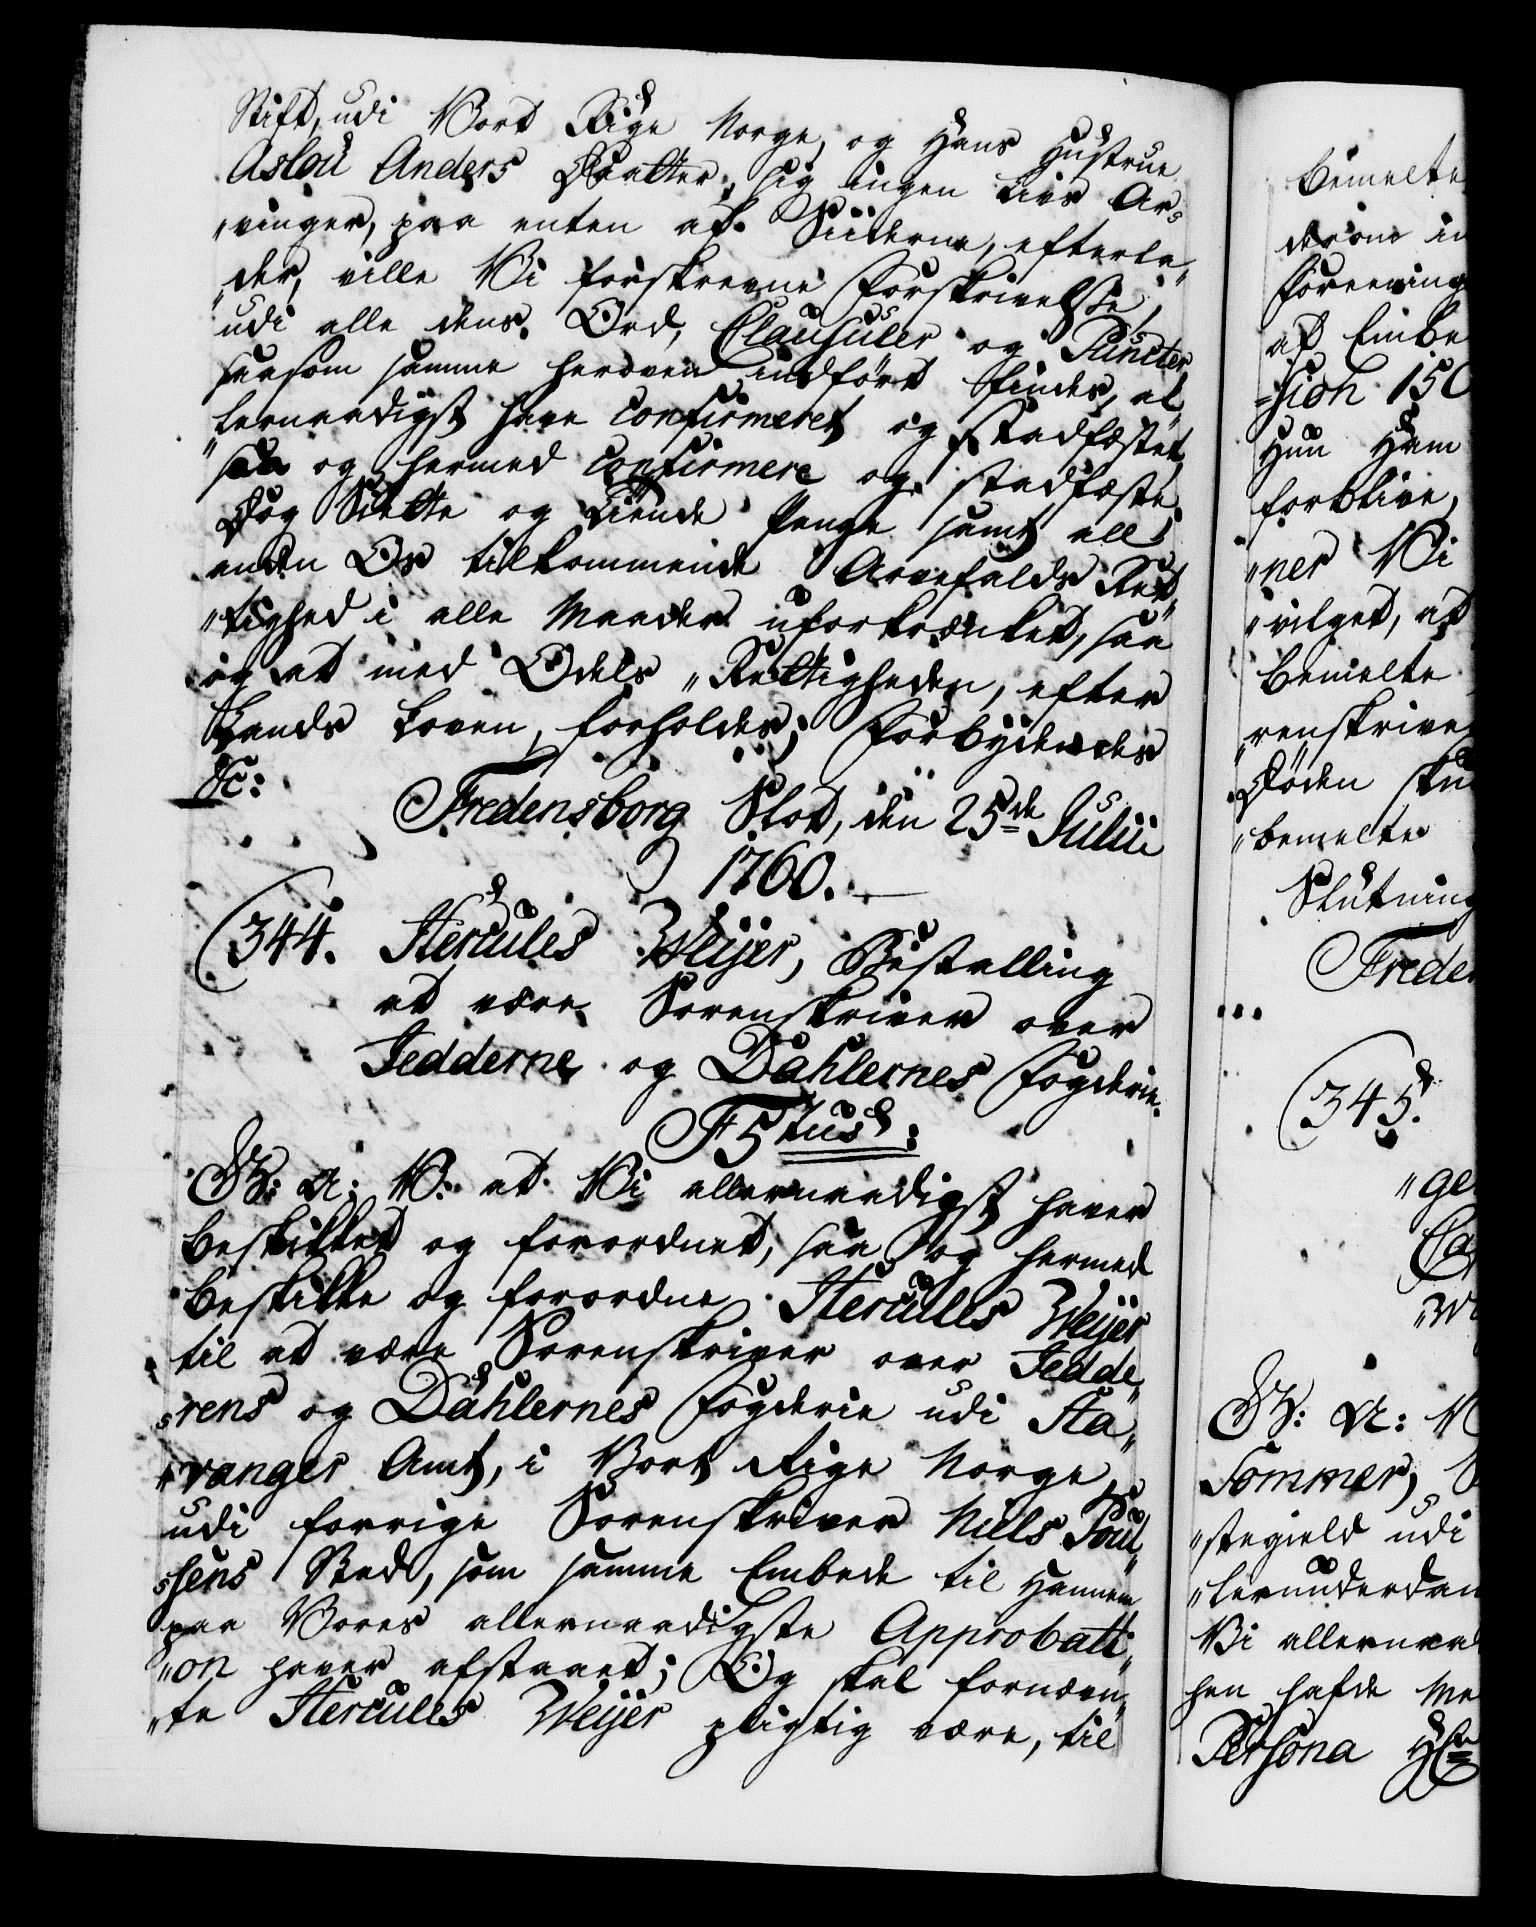 Stift, udi Vort Rige Norge, og Hans Hustrue
Aslou Anders Daatter, sig ingen Livs Ar-
„vinger, paa enten af Siiderne, efterla„
„der, ville Vi forskrevne Forskrivelse,
udi alle dens Ord, Clausuler og Puncter,
saasom samme heroven indført findes, al„
„lernaadigst have confirmeret og stadfæstet,
saa og hermed confirmere og stadfæste.
Dog Siette og Tiende Penge samt all
anden Os tilkommende Arvefalds Ret„
„tighed i alle Maader uforkrænket, saa
og at med Odels „Rettigheden, efter
Lands Loven, forholdes; Forbydendes
&c:
Fredensborg Slot, den 25de Julii
1760.
(344. Hercules Weijer, Bestalling
at være Sorenskriver over
Jedderne og Dahlernes Fogderie.
F5tus:
G: A: V: at Vi allernaadigst haver
beskikket og forordnet, saa og hermed
beskikke og forordne Hercules Weijer
til at være Sorenskriver over Jedde„
„rens og Dahlernes Fogderie udi Sta„
„vanger Amt, i Vort Rige Norge,
udi forrige Sorenskriver Niels Poul„
„sens Sted, som samme Embede til Hannem
paa Vores allernaadigste Approbati„
„on haver afstaaet; Og skal fornævn„
„te Hercules Weijer pligtig være, til
bemelte
derom in
Foreening
af Embe
„sion 150
Hun Ham
forblive,
„ner Vi
„vilget, at
bemelte
„renskrive
Døden sku
„bemelte
Slutning
Freden
(345.
„ge
Ca
G: A: V
Sommer,
„stegield udi
„lerunderdan
Vi allernaa
hen hafde Me
Persona